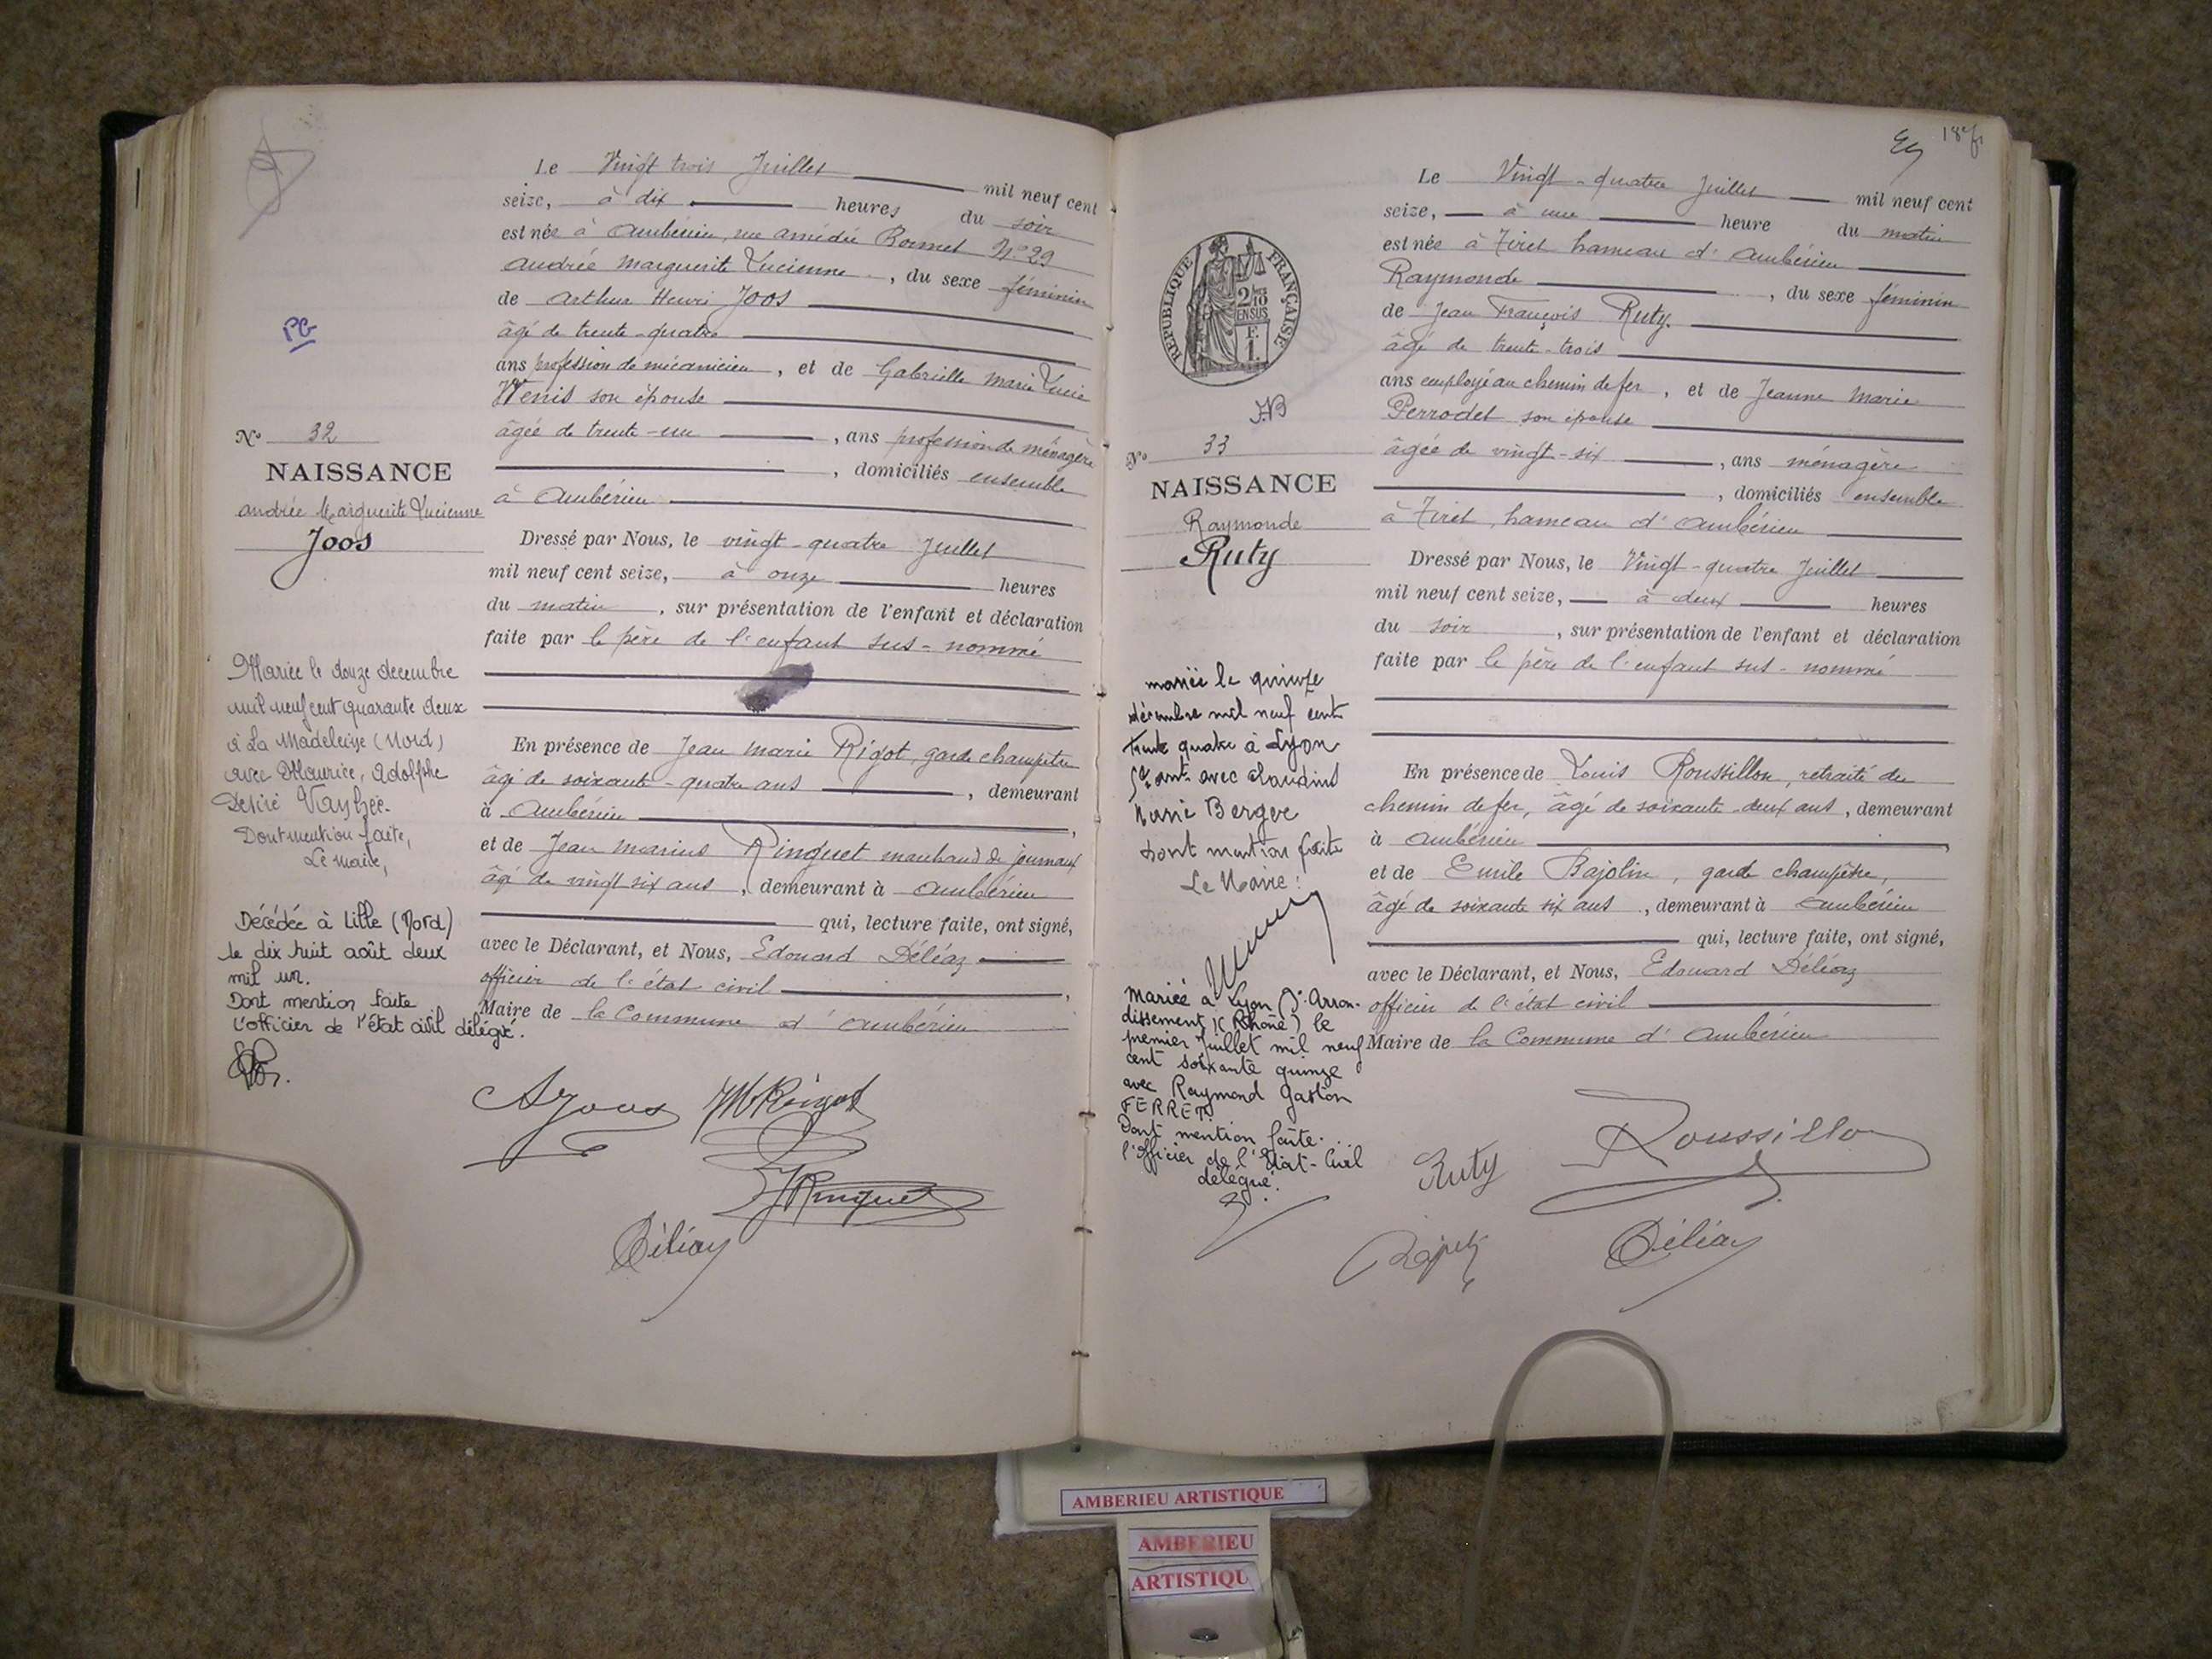 PG
N° 32
NAISSANCE
andrée Marguerite Lucienne
Joos
Mariée le douze decembre
mil neuf cent quarante deux
à La Madeleine (Nord)
avec Maurice, Adolphe
Desiré
Dont mention faite,
Le Maire,
Décédée à Lille (Nord)
le dix huit août deux
mil un.
Dont mention faite
L'officier de l'état civil délégué.
Le Vingt trois Juillet mil neuf cent
seize, à dix heures du soir
est née à Ambérieu, rue amédée Bonnet N° 29
Andrée Marguerite Lucienne, du sexe féminin
de Arthur Henri Joos
âgé de trente-quatre
ans profession de mécanicien, et de Gabrielle Marie Lucie
Wenis son épouse
âgée de trente-un, ans profession de ménagère
, domiciliés ensemble
à Ambérieu
Dressé par Nous, le vingt-quatre Juillet
mil neuf cent seize, à onze heures
du matin, sur présentation de l'enfant et déclaration
faite par le père de l'enfant sus-nommé
En présence de Jean Marie Rigot, garde champêtre
âgé de soixante-quatre ans, demeurant
à Ambérieu,
et de Jean Marius Ringuet marchand de journaux
âgé de vingt six ans, demeurant à Ambérieu
qui, lecture faite, ont signé,
avec le Déclarant, et Nous, Edouard Déléaz
officier de l'état civil,
Maire de la Commune d'Ambérieu
AJoos JMRigot
JRinguet
Déléaz
187
REPUBLIQUE FRANÇAISE
2/10 EN SUS
F. 1.
N° 33
NAISSANCE
Raymonde
Ruty
mariée le quinze
décembre mil neuf cent
trente quatre à Lyon
avec Claudius
Marie Berger
dont mention faite
Le Maire:
Mariée à Lyon Arron-
dissement (Rhône) le
premier Juillet mil neuf
cent soixante quinze
avec Raymond Gaston
FERRET.
Dont mention faite.
l'Officier de l'Etat-Civil
délégué.
Le Vingt-quatre Juillet mil neuf cent
seize, à une heure du matin
est née à Tiret hameau d'Ambérieu
Raymonde, du sexe féminin
de Jean François Ruty.
âgé de trente-trois
ans employé au chemin de fer, et de Jeanne Marie
Perrodet son épouse
âgée de vingt-six, ans ménagère
, domiciliés ensemble
à Tiret, hameau d'Ambérieu
Dressé par Nous, le Vingt-quatre Juillet
mil neuf cent seize, à deux heures
du soir, sur présentation de l'enfant et déclaration
faite par le père de l'enfant sus-nommé
En présence de Louis Roussillon, retraité du
chemin de fer, âgé de soixante-deux ans, demeurant
à Ambérieu,
et de Emile Bajolin, garde champêtre,
âgé de soixante six ans, demeurant à Ambérieu
qui, lecture faite, ont signé,
avec le Déclarant, et Nous, Edouard Déléaz
officier de l'état civil
Maire de la Commune d'Ambérieu
Roussillo
Ruty
Déléaz
AMBERIEU ARTISTIQUE
AMBERIEU
ARTISTIQU